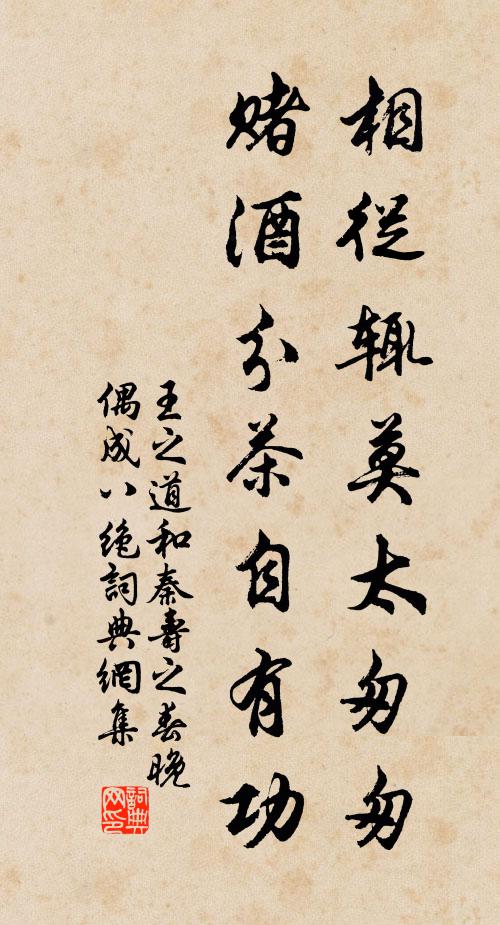 相從辄莫太匆匆
賭酒分茶自有功
王之道和秦壽之春晚
偶成八絶詞典網集
詞典网印